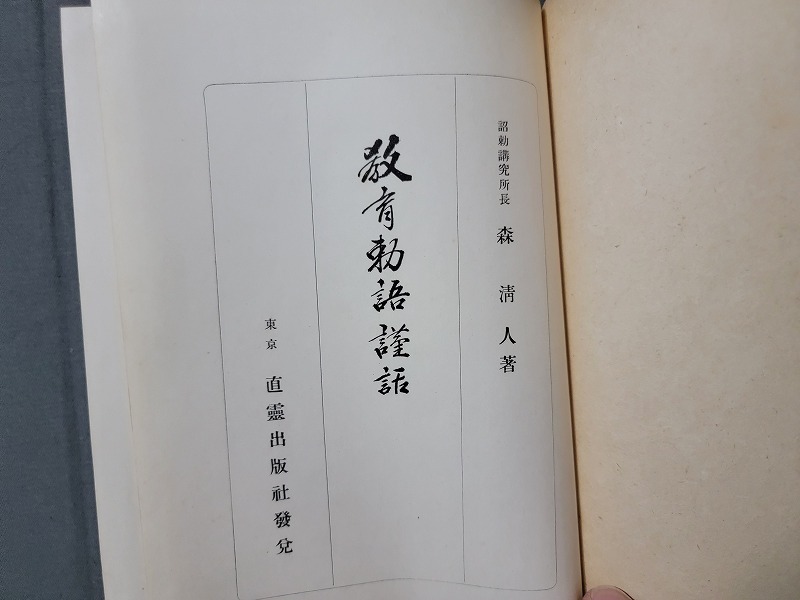 詔勅講究所長 森清人著
教育勅語謹話
東京 直靈出版社發兌